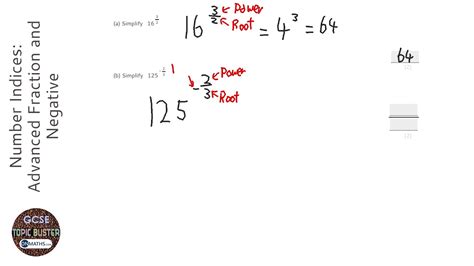 Number Indices:
Advanced Fraction and
Negative
(a) Simplify 16^(3/2)
16^(3/2) ← Power
← Root
= 4³ = 64
64
(b) Simplify 125^(-2/3)
1
125^(-2/3) ← Power
← Root
GCSE
TOPIC BUSTER